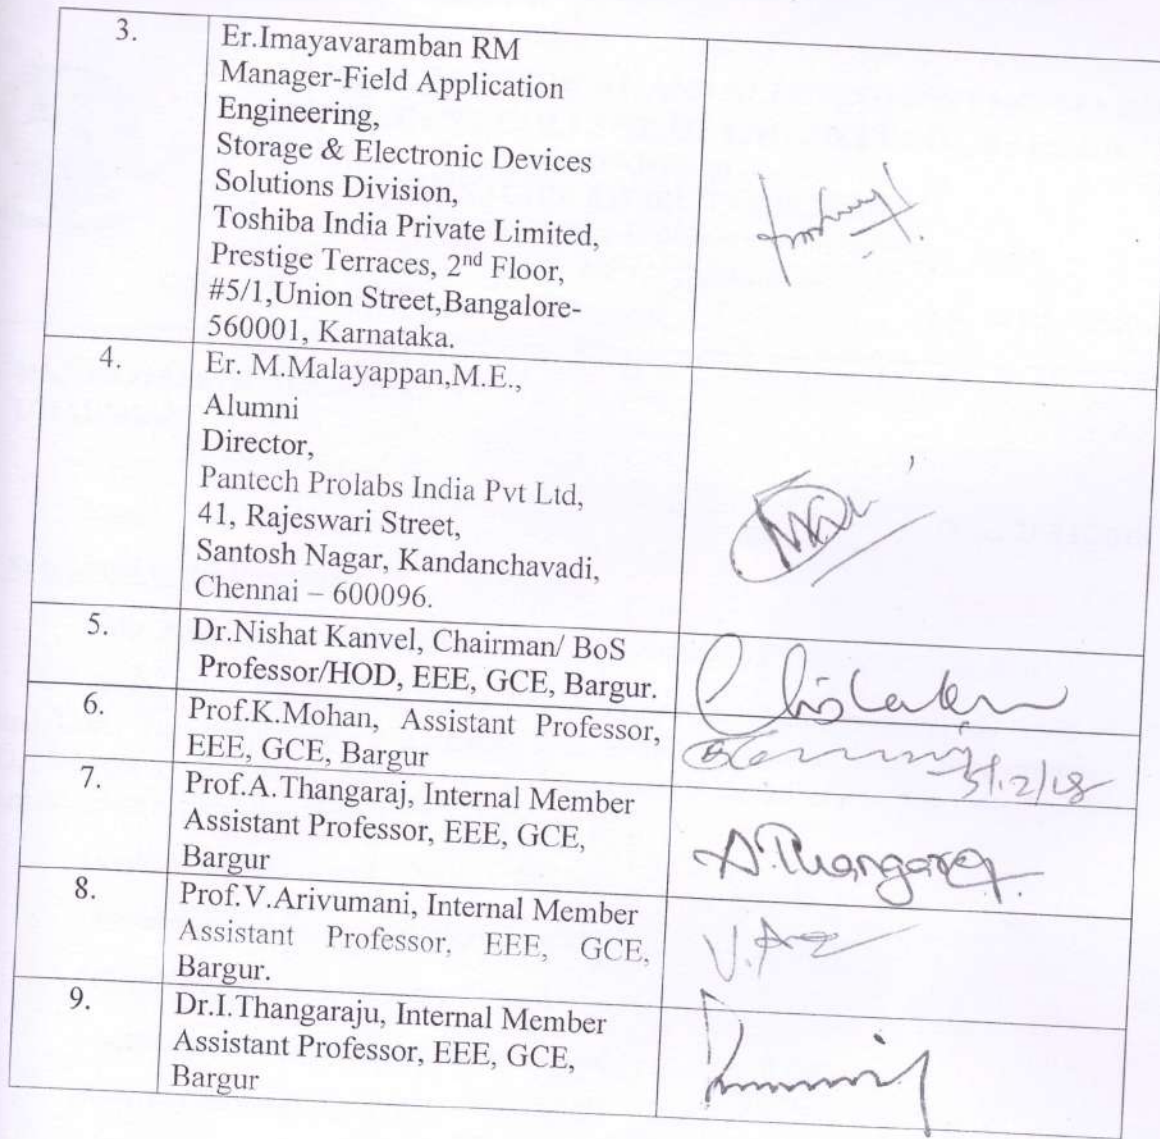 3.
Er.Imayavaramban RM
Manager-Field Application
Engineering,
Storage & Electronic Devices
Solutions Division,
Toshiba India Private Limited,
Prestige Terraces, 2nd Floor,
#5/1,Union Street,Bangalore-
560001, Karnataka.
4.
Er. M.Malayappan,M.E.,
Alumni
Director,
Pantech Prolabs India Pvt Ltd,
41, Rajeswari Street,
Santosh Nagar, Kandanchavadi,
Chennai – 600096.
5.
Dr.Nishat Kanvel, Chairman/ BoS
Professor/HOD, EEE, GCE, Bargur.
6.
Prof.K.Mohan, Assistant Professor,
EEE, GCE, Bargur
7.
Prof.A.Thangaraj, Internal Member
Assistant Professor, EEE, GCE,
Bargur
A.Thangaraj.
8.
Prof.V.Arivumani, Internal Member
Assistant Professor, EEE, GCE,
Bargur.
9.
Dr.I.Thangaraju, Internal Member
Assistant Professor, EEE, GCE,
Bargur